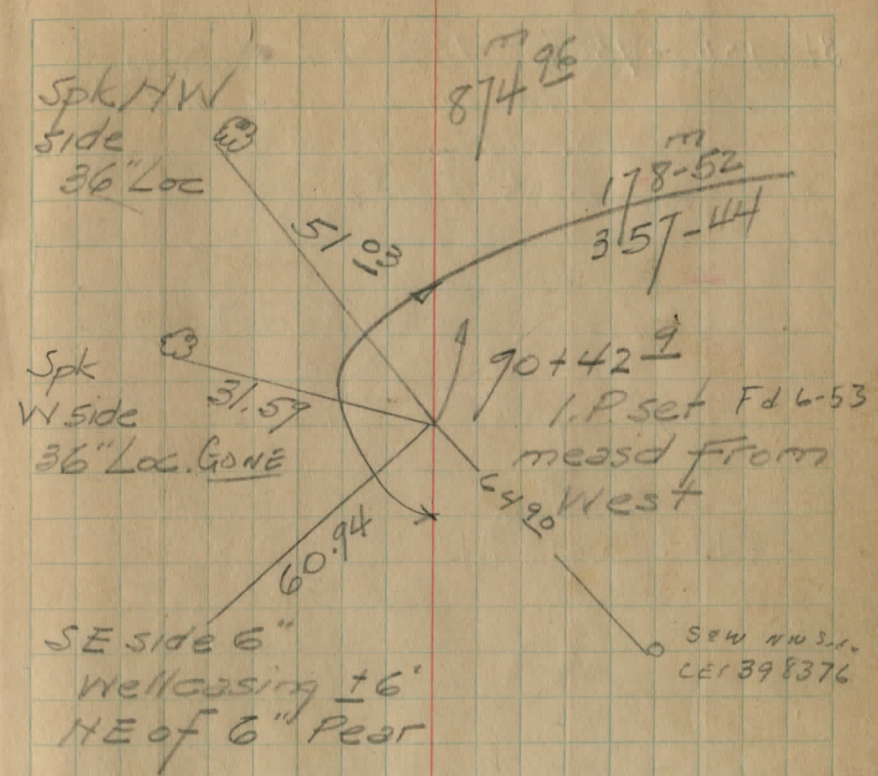 m
874 96
Spk. NW
side
36" Loc
51 03
m
178-52
357-44
Spk
W side
36" Loc. GONE
31.59
90+42 9
I.P. set Fd 6-53
measd from
West
64 90
60.94
SE side 6"
Wellcasing ±6'
NE of 6" Pear
CEI 398376